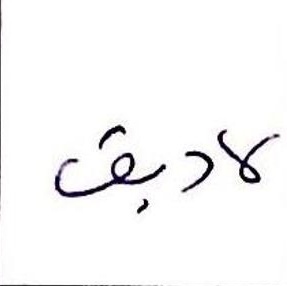 لادیق